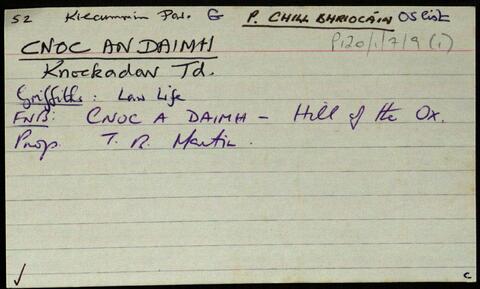 52 Kilcummin Par. G P. CHILL BHRIOCÁIN OS List
P120/1/7/9 (1)
CNOC AN DAIMH
Knockadav Td.
Griffiths: Law Life
FNB: CNOC A DAIMH - Hill of the Ox.
Prop. T. B. Martin.
✓ C